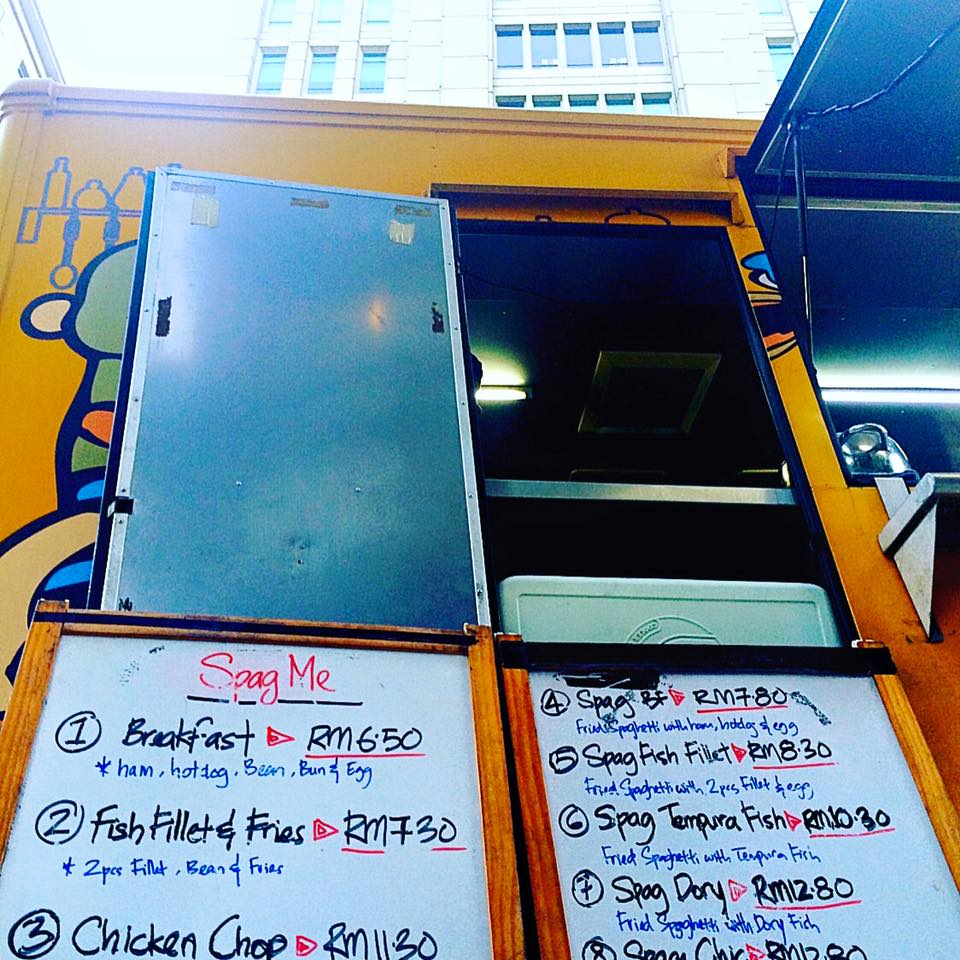 Spag Me
① Breakfast ▷ RM6.50
* ham, hotdog, Bean, Bun & Egg
② Fish Fillet & Fries ▷ RM7.30
* 2pcs Fillet, Bean & Fries
③ Chicken Chop ▷ RM11.30
④ Spag BF ▷ RM7.80
Fried Spaghetti with ham, hotdog & egg
⑤ Spag Fish Fillet ▷ RM8.30
Fried Spaghetti with 2pcs Fillet & egg
⑥ Spag Tempura Fish ▷ RM10.30
Fried Spaghetti with Tempura Fish
⑦ Spag Dory ▷ RM12.80
Fried Spgaghetti with Dory Fish
⑧ Spag Chic ▷ RM12.80